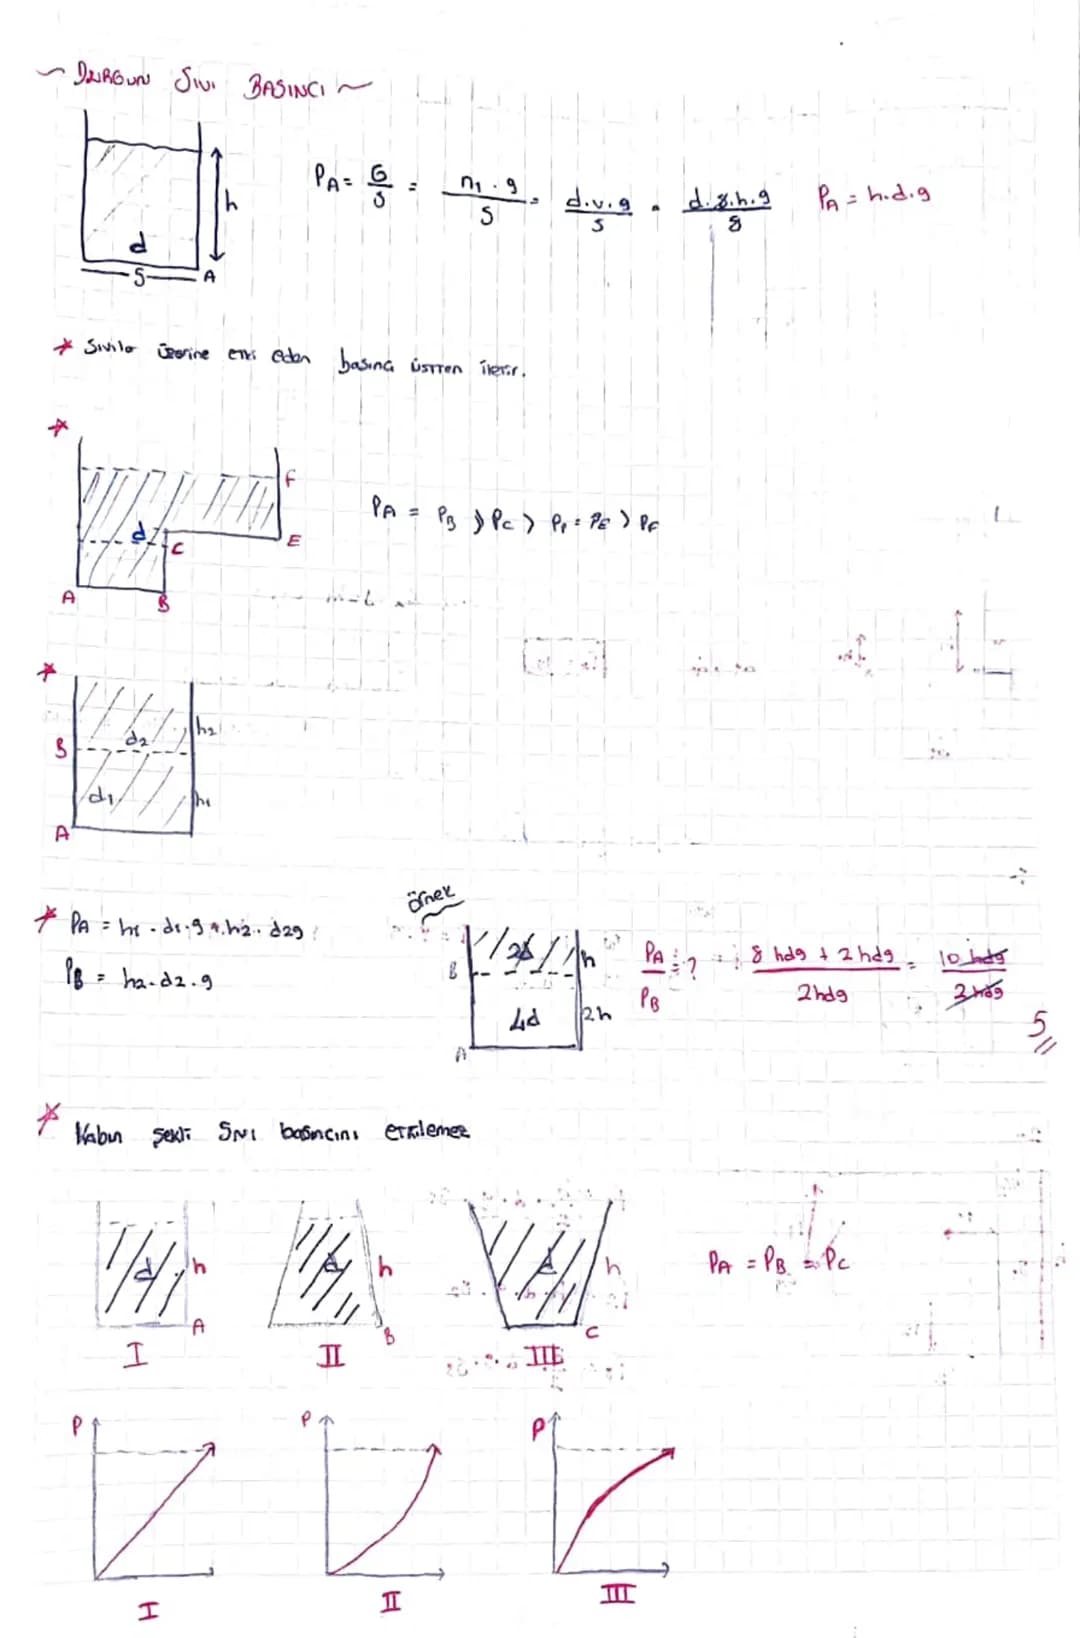 ~ DURGUN SIVI BASINCI ~
h
d
S
A
PA = G/S = m.g/S = d.v.g/S = d.s.h.g/s
PA = h.d.g
* Sıvılar üzerine etki eden basıncı üstten iletir.
*
F
d
C
E
A
B
PA = PB > PC > PF = PE > PF
*
d2
h2
B
d1
h1
A
* PA = h1 . d1.g + h2 . d2g
PB = h2.d2.g
örnek
2d
h
B
4d
2h
A
PA/PB = ?
8 hdg + 2 hdg / 2hdg = 10 hdg / 2 hdg
5
* Kabın şekli sıvı basıncını etkilemez
d
h
A
I
d
h
B
II
d
h
C
III
PA = PB = PC
P
I
P
II
P
III